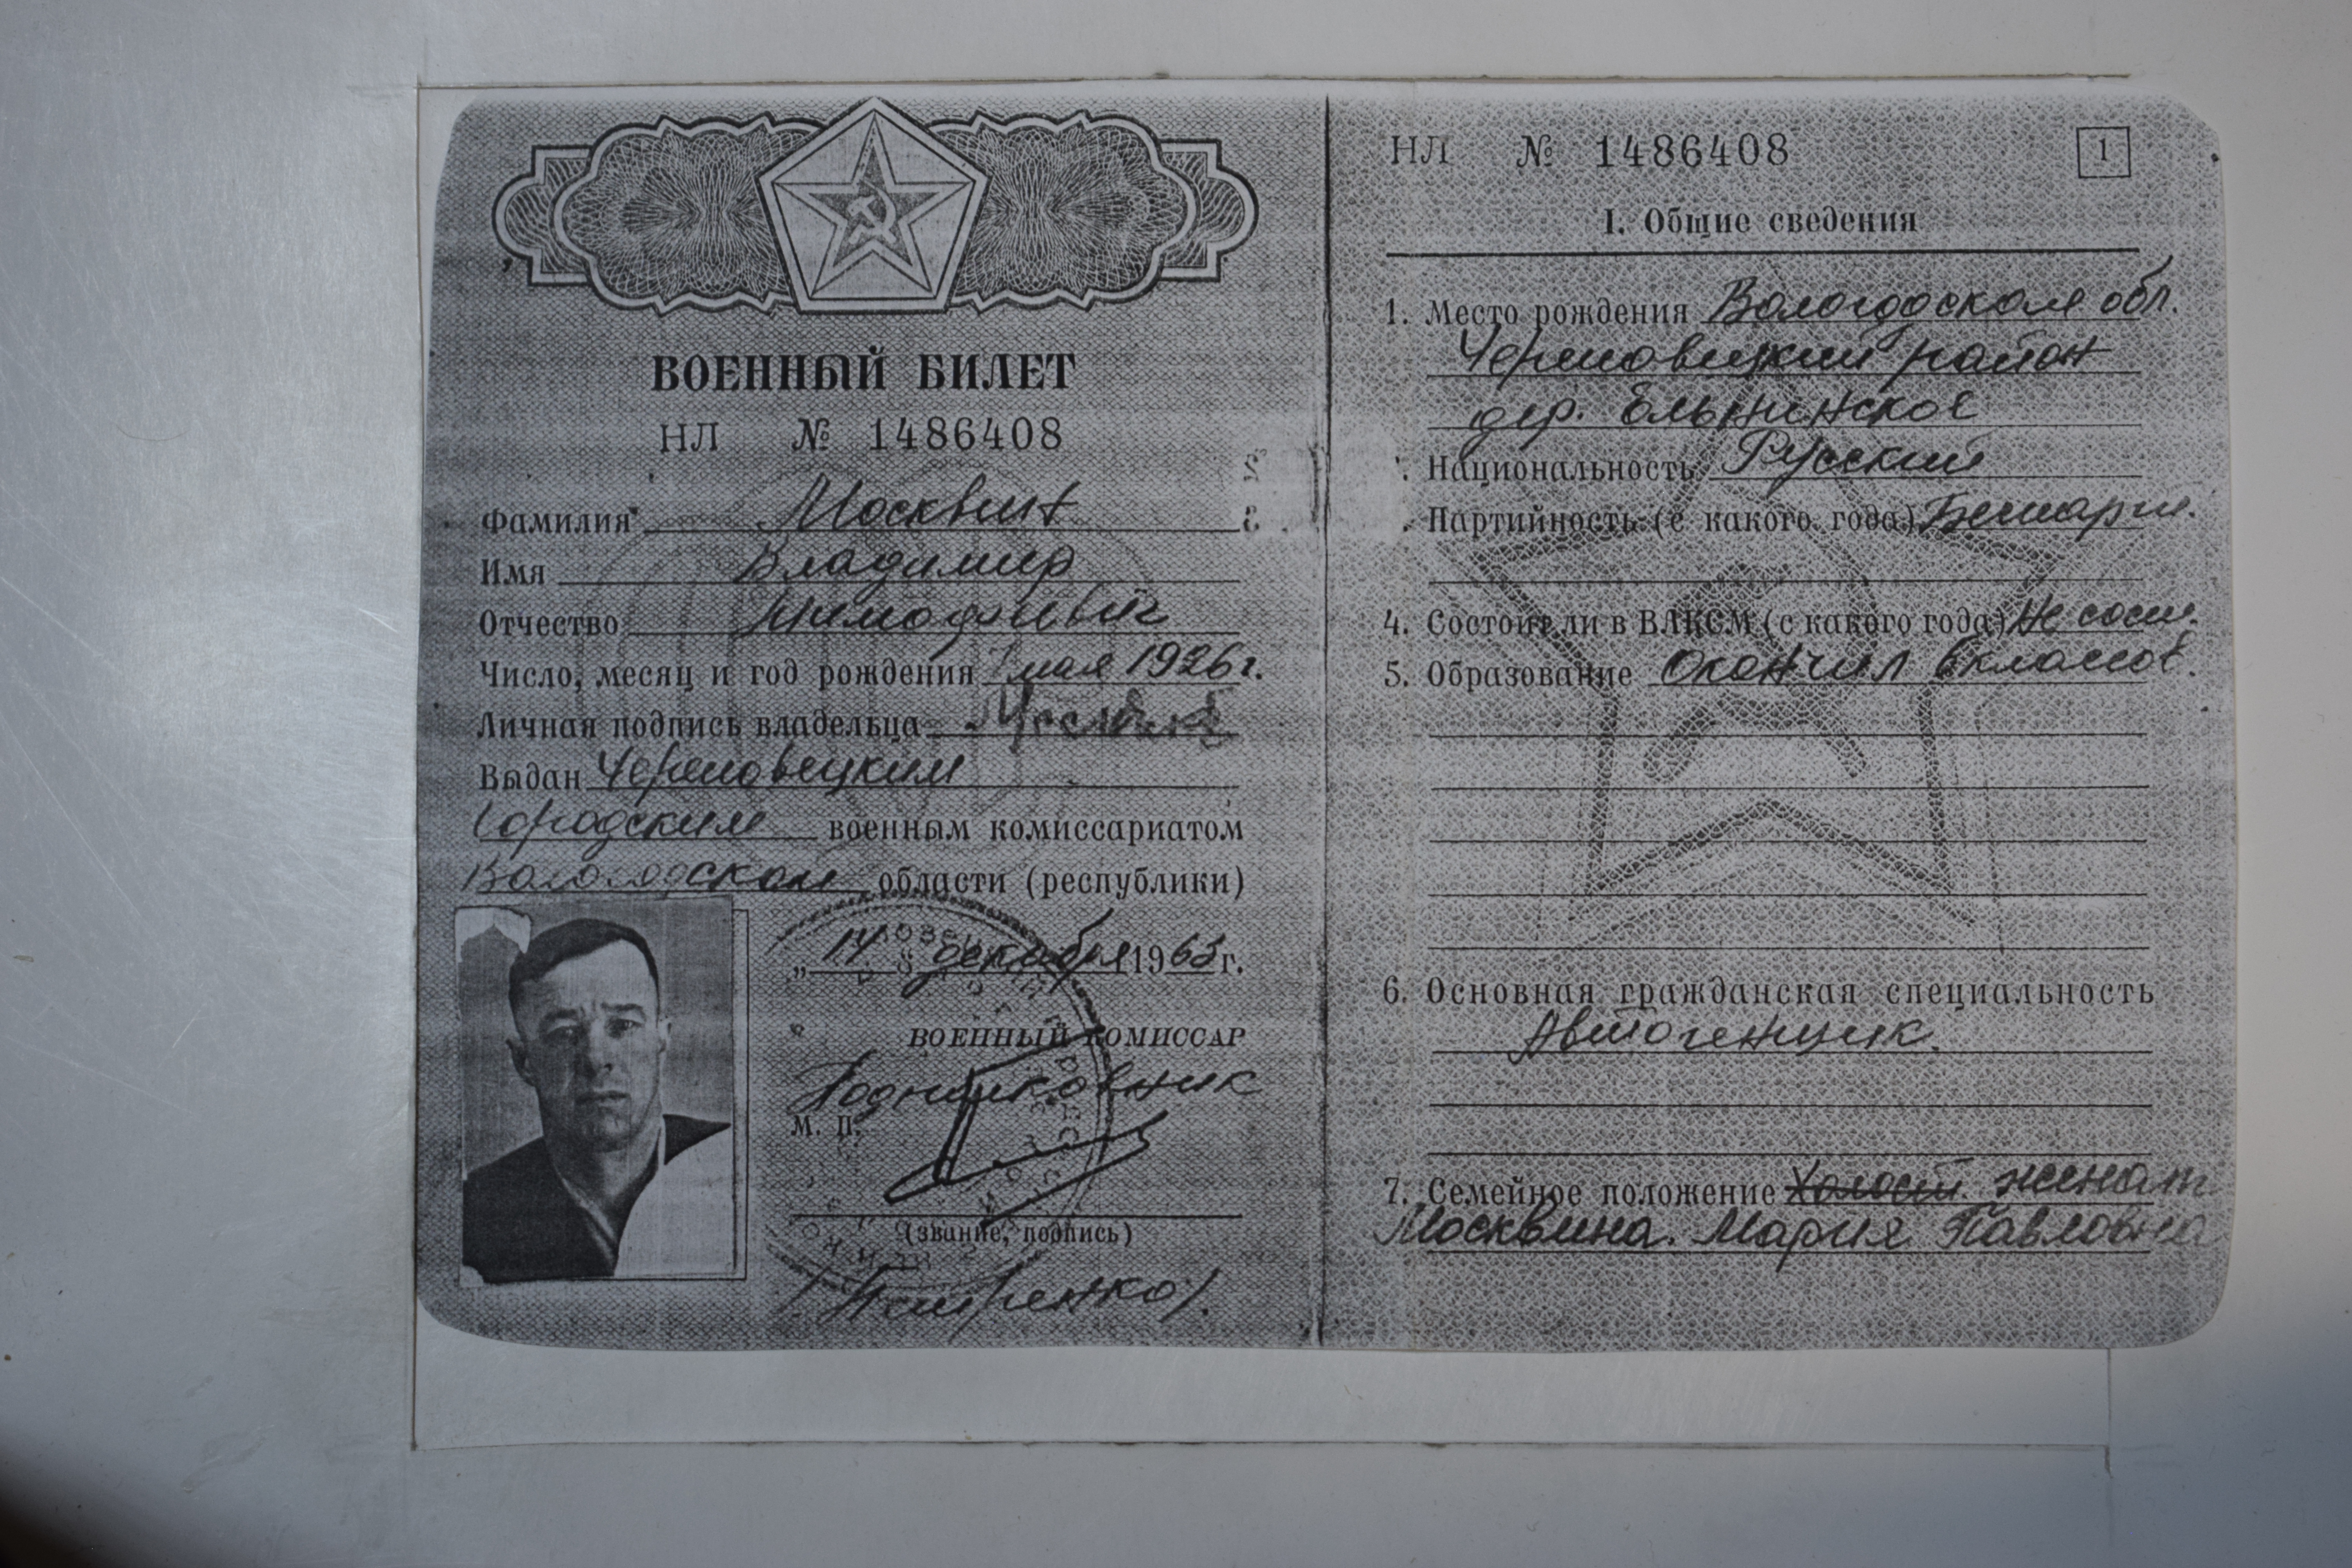 ВОЕННЫЙ БИЛЕТ
НЛ № 1486408
Фамилия Москвин
Имя Владимир
Отчество Тимофеевич
Число, месяц и год рождения 7 мая 1926 г.
Личная подпись владельца
Выдан Череповецким
Городским военным комиссариатом
Вологодской области (республики)
„14 декабря 1963 г.
ВОЕННЫЙ КОМИССАР
Подполковник
М. П.
(звание, подпись)
НЛ № 1486408 1
I. Общие сведения
1. Место рождения Вологодской обл.
Череповецкий район
дер. Ельнинское
Национальность Русский
Партийность (с какого года) Беспарт.
4. Состоял ли в ВЛКСМ (с какого года) Не сост.
5. Образование Окончил 6 классов.
6. Основная гражданская специальность
Автогенщик.
7. Семейное положение Холост. женат
Москвина. Мария Павловна